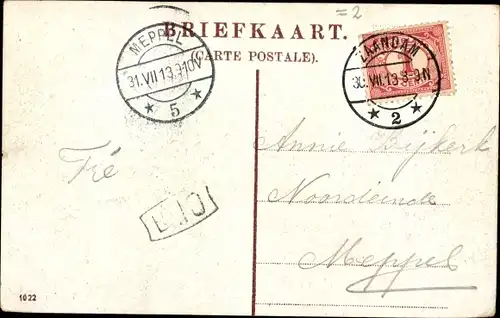 =2
BRIEFKAART.
(CARTE POSTALE).
MEPPEL
31.VII.13.9-10V
★ 5 ★
ZAANDAM
30.VII.13.8-9N
★ 2 ★
Fré
Annie Bijkerk
Noordeinde
Meppel
1022